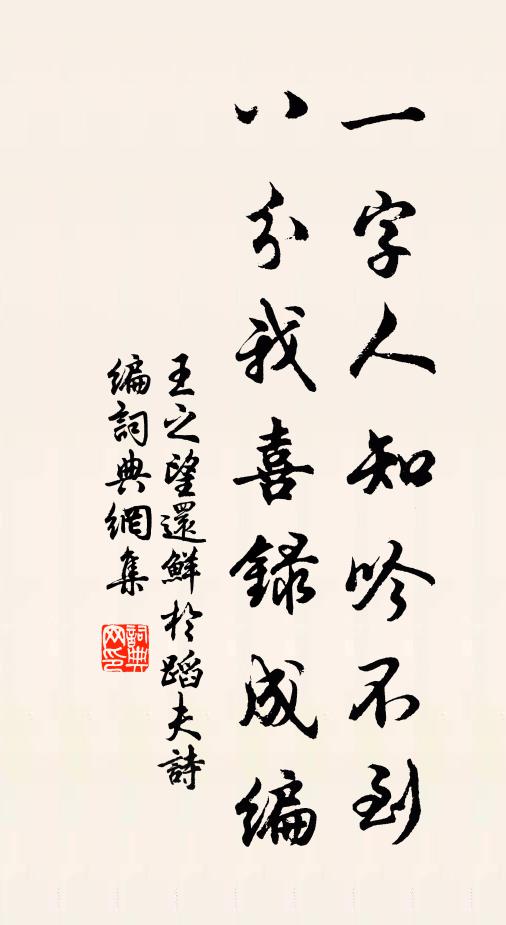 一字人知吟不到
八分我喜録成編
王之望還鮮於蹈夫詩
編詞典網集
詞典網印